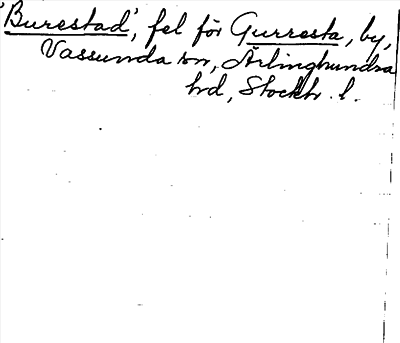 'Burestad', fel för Gurresta, by,
Vassunda sn, Ärlinghundra
hd, Stockh. l.